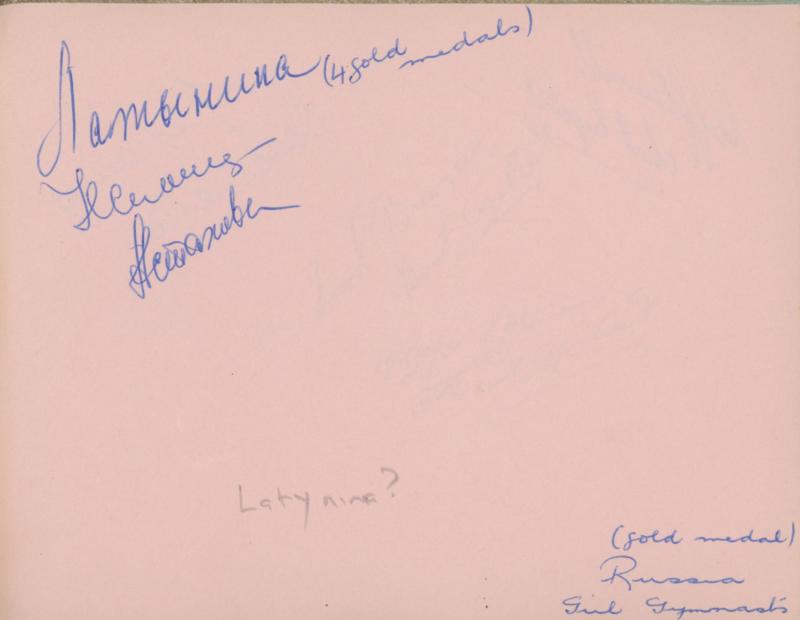 Латынина (4 gold medals)
Астахова
Latynina?
(gold medal)
Russia
Girl Gymnasts